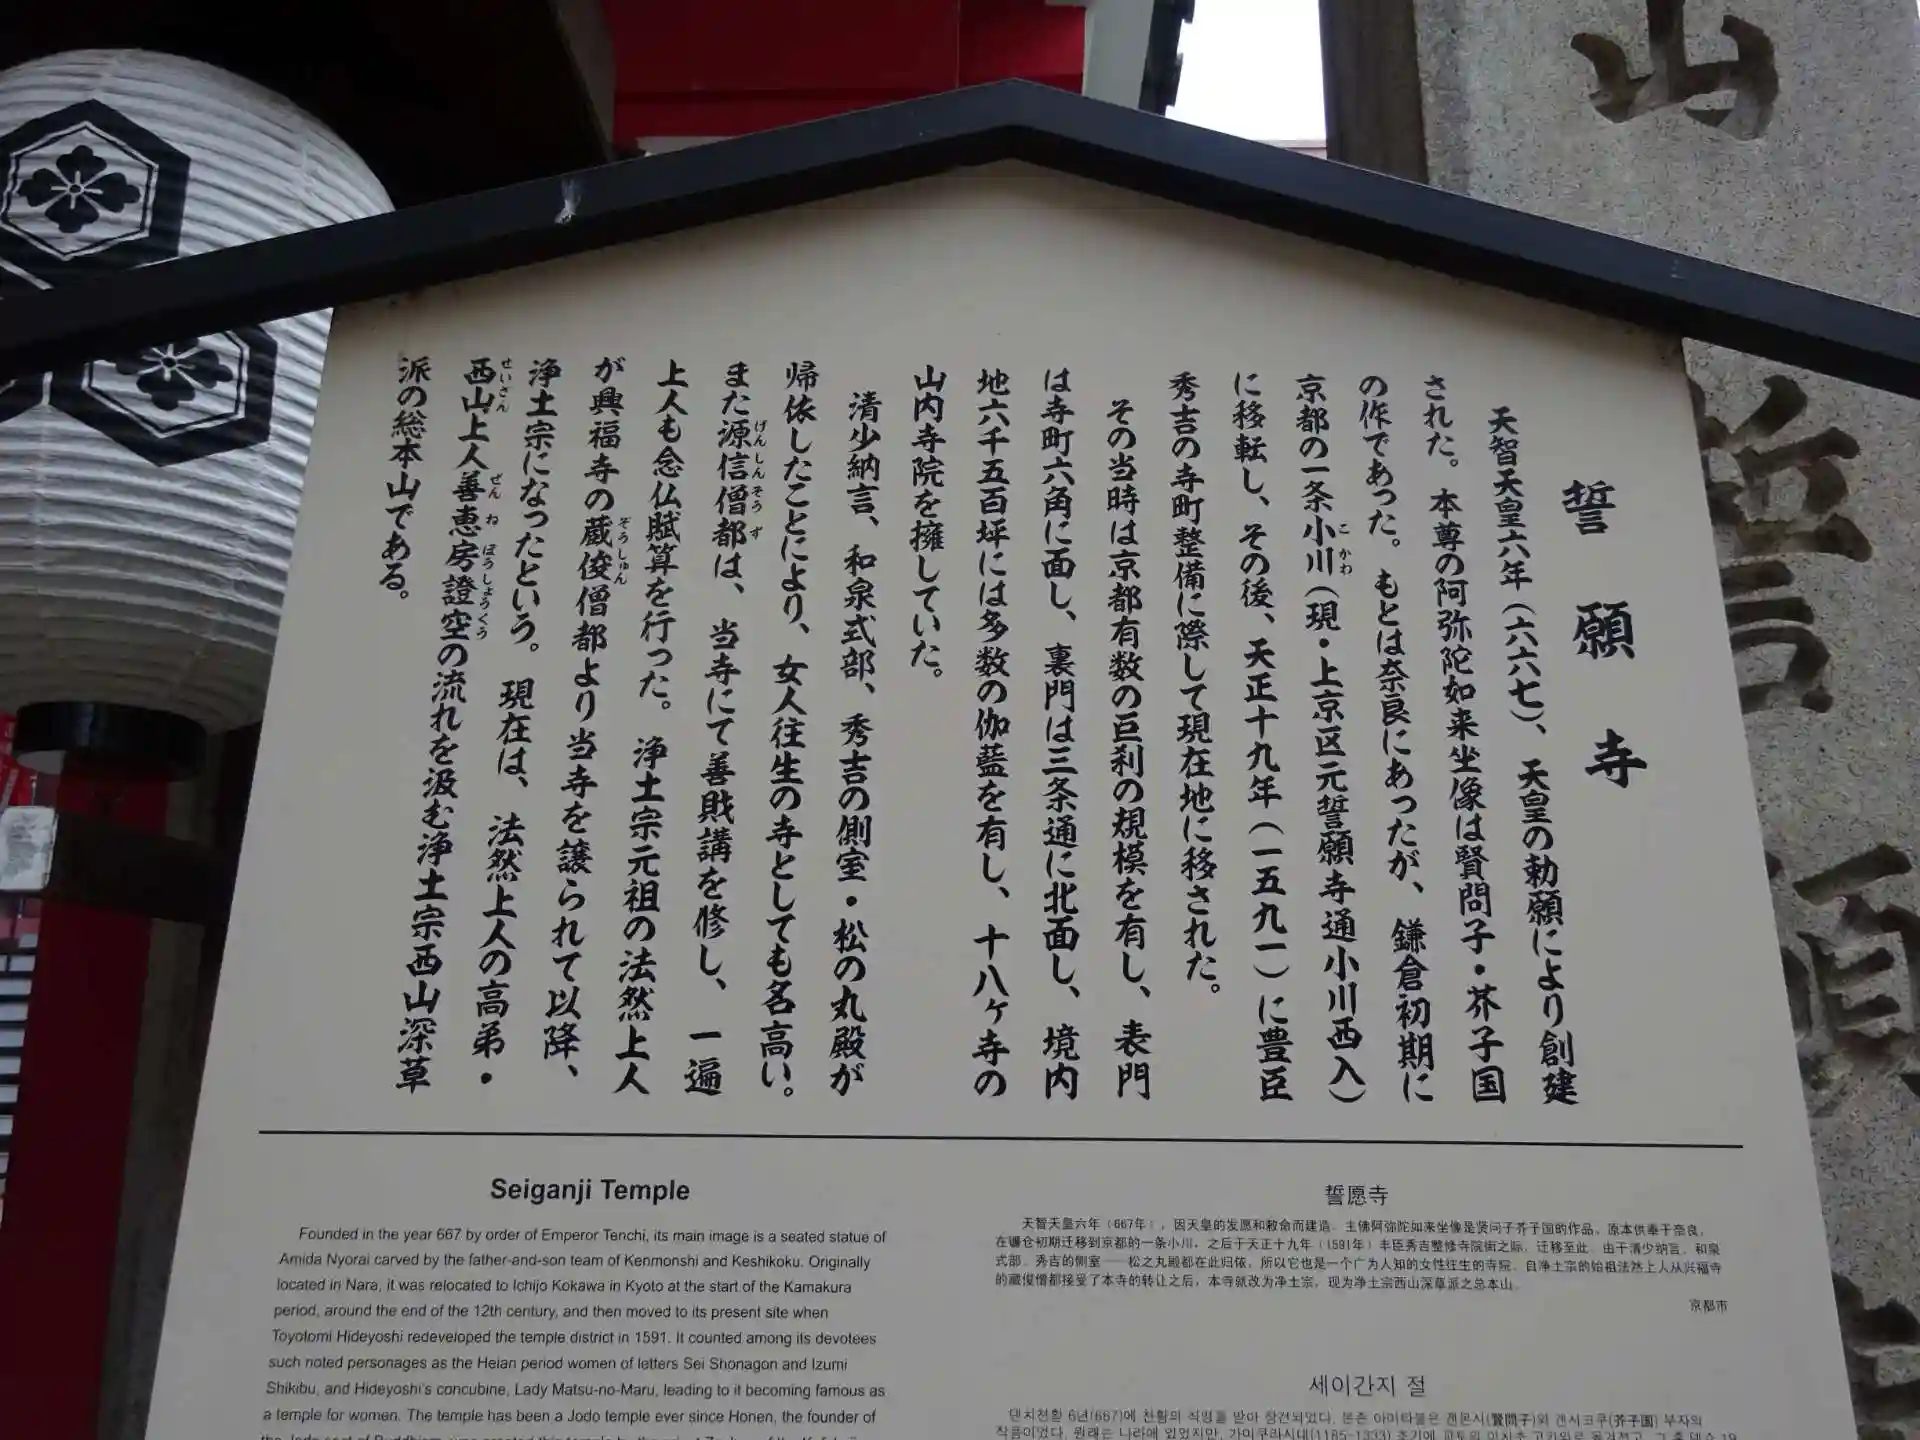 誓願寺
天智天皇六年（六六七）、天皇の勅願により創建
された。本尊の阿弥陀如来坐像は賢問子・芥子国
の作であった。もとは奈良にあったが、鎌倉初期に
京都の一条小川（現・上京区元誓願寺通小川西入）
に移転し、その後、天正十九年（一五九一）に豊臣
秀吉の寺町整備に際して現在地に移された。
その当時は京都有数の巨刹の規模を有し、表門
は寺町六角に面し、裏門は三条通に北面し、境内
地六千五百坪には多数の伽藍を有し、十八ヶ寺の
山内寺院を擁していた。
清少納言、和泉式部、秀吉の側室・松の丸殿が
帰依したことにより、女人往生の寺としても名高い。
また源信僧都は、当寺にて善財講を修し、一遍
上人も念仏賦算を行った。浄土宗元祖の法然上人
が興福寺の蔵俊僧都より当寺を譲られて以降、
浄土宗になったという。現在は、法然上人の高弟・
西山上人善恵房證空の流れを汲む浄土宗西山深草
派の総本山である。
Seiganji Temple
Founded in the year 667 by order of Emperor Tenchi, its main image is a seated statue of
Amida Nyorai carved by the father-and-son team of Kenmonshi and Keshikoku. Originally
located in Nara, it was relocated to Ichijo Kokawa in Kyoto at the start of the Kamakura
period, around the end of the 12th century, and then moved to its present site when
Toyotomi Hideyoshi redeveloped the temple district in 1591. It counted among its devotees
such noted personages as the Heian period women of letters Sei Shonagon and Izumi
Shikibu, and Hideyoshi's concubine, Lady Matsu-no-Maru, leading to it becoming famous as
a temple for women. The temple has been a Jodo temple ever since Honen, the founder of
誓愿寺
天智天皇六年（667年），因天皇的发愿和敕命而建造。主佛阿弥陀如来坐像是贤问子芥子国的作品。原本供奉于奈良，
在镰仓初期迁移到京都的一条小川，之后于天正十九年（1591年）丰臣秀吉整修寺院街之际，迁移至此。由于清少纳言、和泉
式部、秀吉的侧室——松之丸殿都在此归依，所以它也是一个广为人知的女性往生的寺院。自净土宗的始祖法然上人从兴福寺
的藏俊僧都接受了本寺的转让之后，本寺就改为净土宗，现为净土宗西山深草派之总本山。
京都市
세이간지 절
덴치천황 6년(667)에 천황의 칙명을 받아 창건되었다. 본존 아미타불은 겐몬시(賢問子)와 겐시코쿠(芥子国) 부자의
山
誓
願